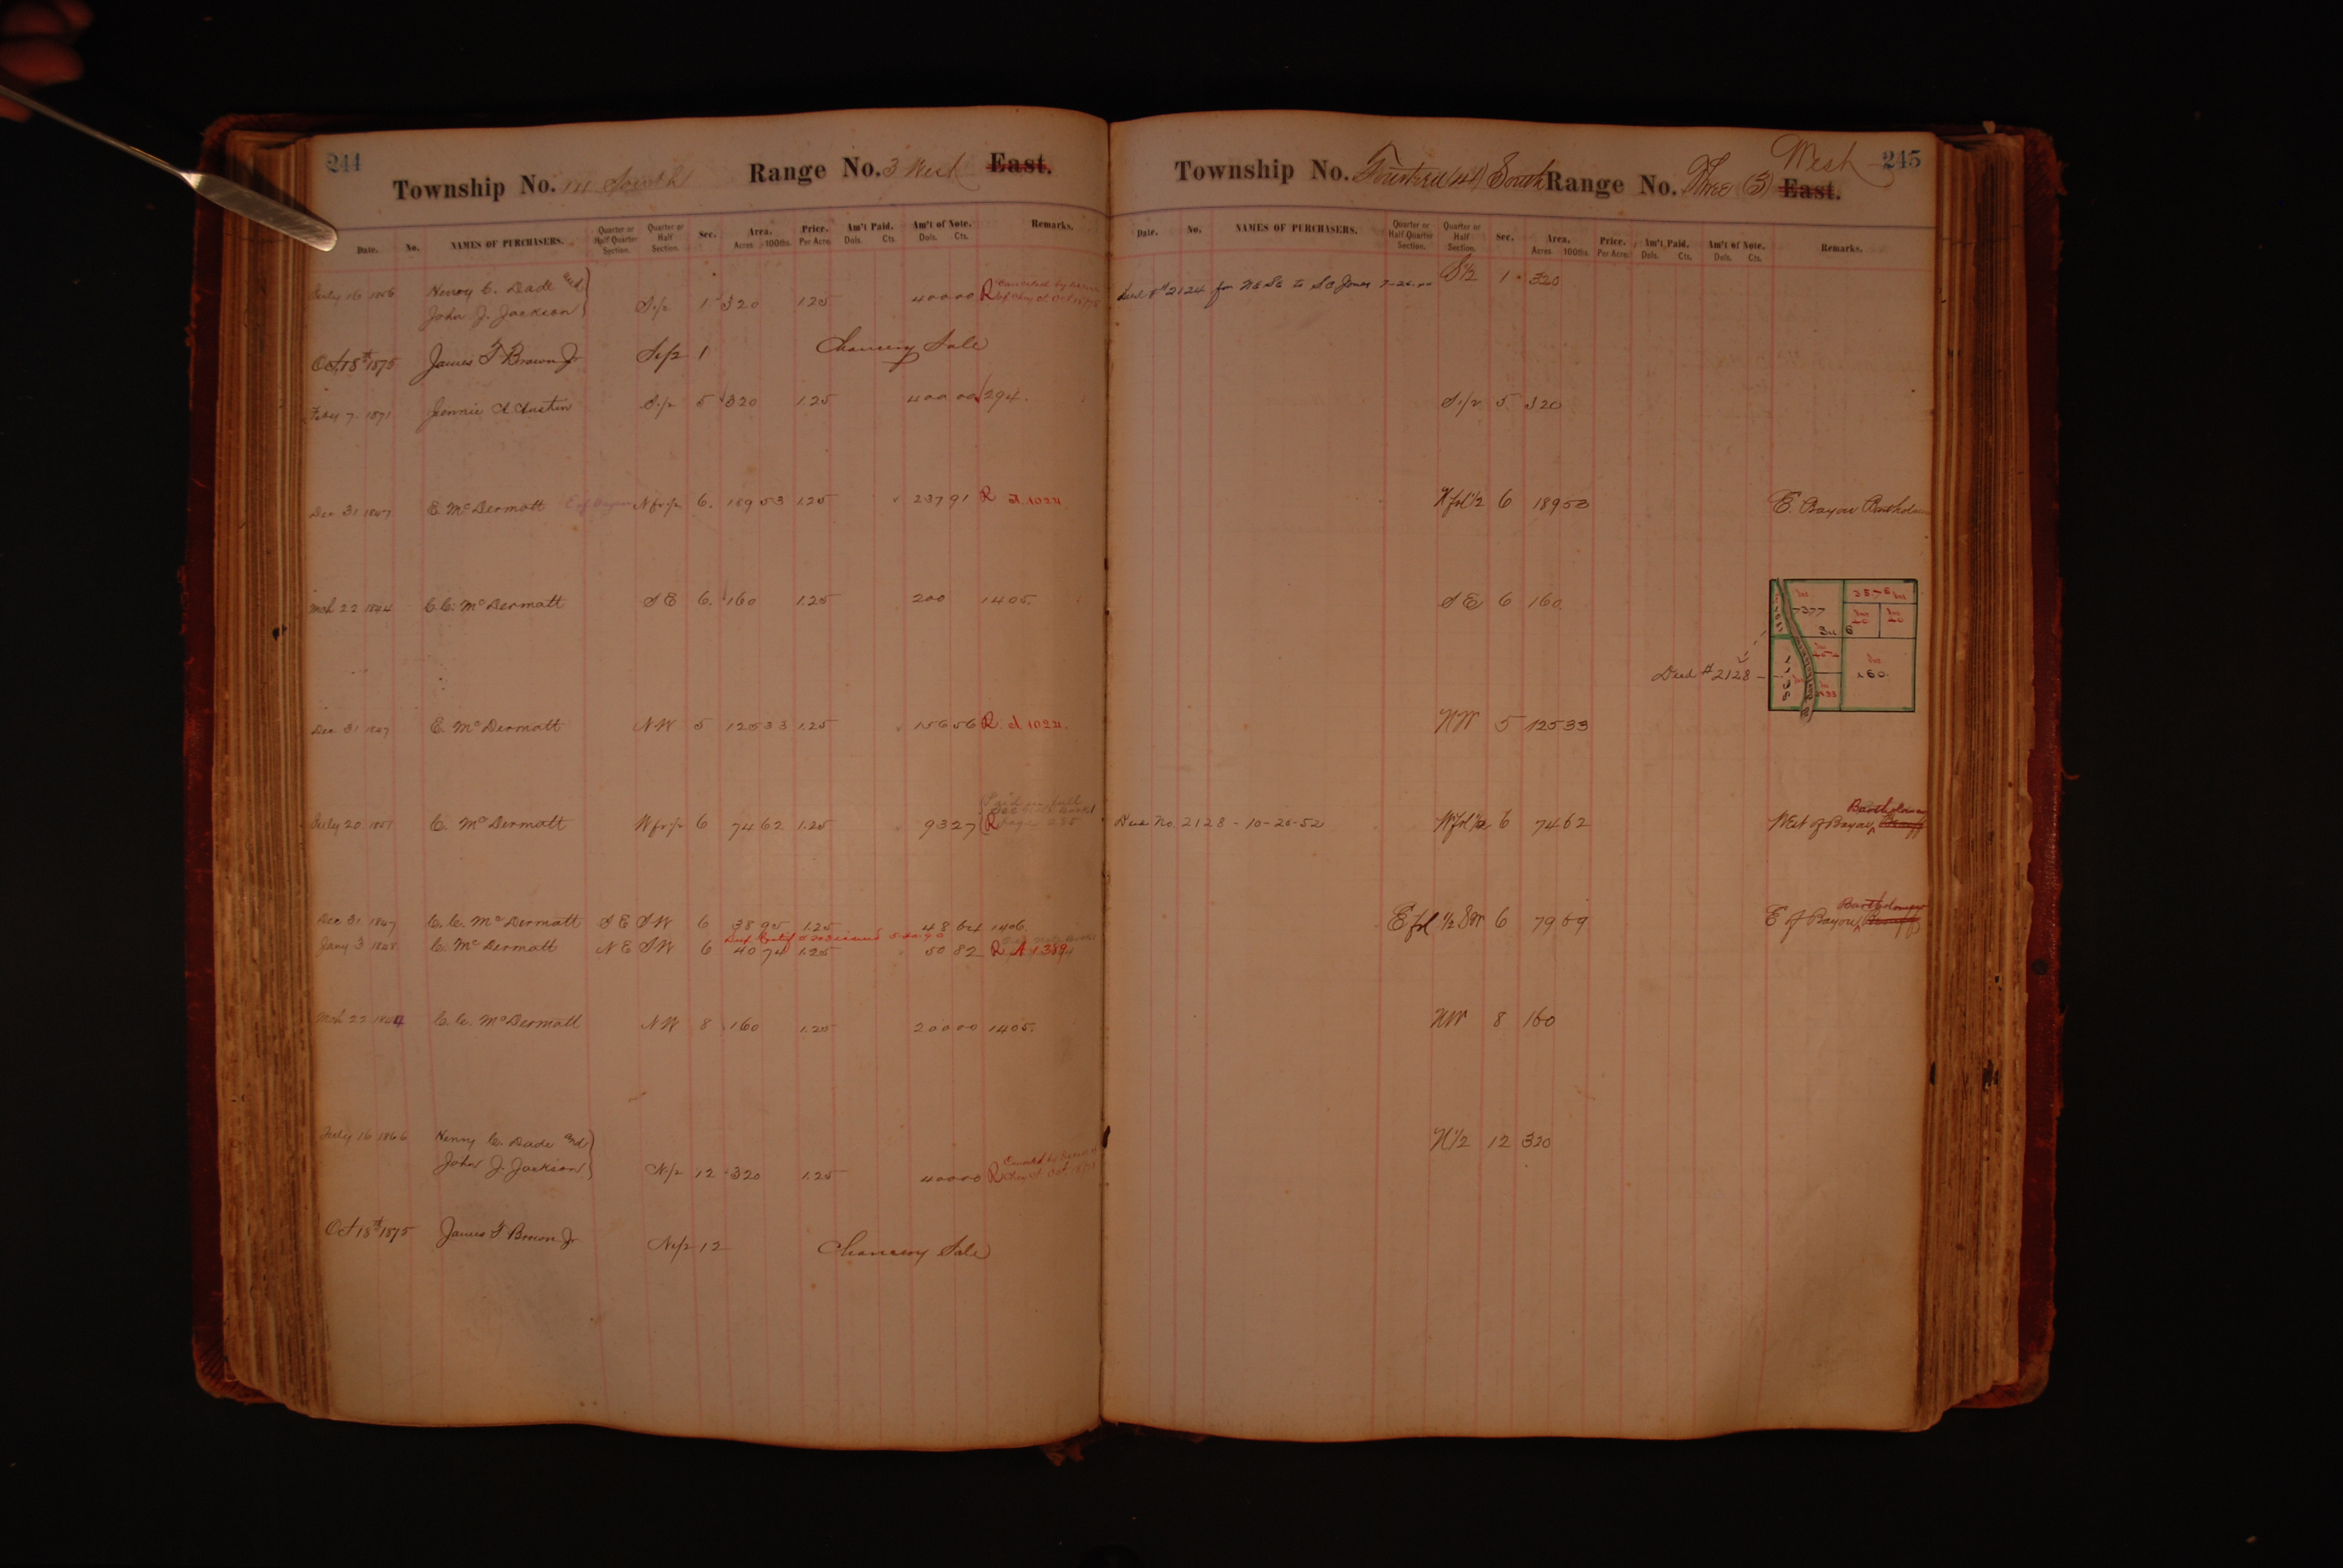 244
Township No. 14 South Range No. 3 West East.
Date. No. NAMES OF PURCHASERS. Quarter or Half Quarter Section. Quarter or Half Section. Sec. Area. Acres 100ths. Price. Per Acre. Am't Paid. Dols. Cts. Am't of Note. Dols. Cts. Remarks.
July 16 1866 Henry C. Dade and
John J. Jackson S 1/2 1 320 1.25 400 00 R
Oct 18th 1875 James F Brown Jr S 1/2 1 Chancery Sale
Feby 7 1871 Jennie A Austin S 1/2 5 320 1.25 400 00 294.
Dec 31 1847 E. McDermott E of Bayou N fr 1/2 6. 189 53 1.25 237 91 R A 1024
Mch 22 1844 C.C. McDermatt S E 6. 160 1.25 200 1405.
Dec 31 1847 E. McDermatt N W 5 125 33 1.25 156 56 R A 1024.
Paid in full
July 20 1851 C. McDermatt W fr 1/2 6 74 62 1.25 93 27 R Page 255
Dec 31 1847 C. C. McDermatt S E S W 6 38 95 1.25 48 64 1406.
Jany 3 1848 C. McDermatt N E S W 6 40 74 1.25 50 82 R A 1389
Mch 22 1844 C. C. McDermatt N W 8 160 1.25 200 00 1405.
July 16 1866 Henry C. Dade and
John J. Jackson N 1/2 12 320 1.25 400 00 R
Oct 18th 1875 James F Brown Jr N 1/2 12 Chancery Sale
245
Township No. Fourteen (14) South Range No. Three (3) West East.
Date. No. NAMES OF PURCHASERS. Quarter or Half Quarter Section. Quarter or Half Section. Sec. Area. Acres 100ths. Price. Per Acre. Am't Paid. Dols. Cts. Am't of Note. Dols. Cts. Remarks.
Deed #2124 for NE SE to S C Jones S 1/2 1 320
S 1/2 5 320
N frl 1/2 6 189 53 E. Bayou
S E 6 160
Sec 6
160
Deed #2128
N W 5 125 33
Bartholomew
Deed No. 2128 - 10-20-52 W frl 1/2 6 74 62 West of Bayou
Bartholomew
E frl 1/2 SW 6 79 69 E of Bayou
N W 8 160
N 1/2 12 320